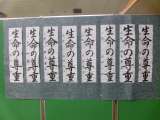 生命の尊重
生命の尊重
生命の尊重
生命の尊重
生命の尊重
生命の尊重
生命の尊重